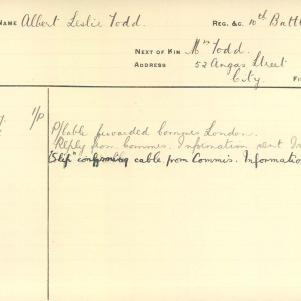 NAME Albert Leslie Todd. REG. &C. 10th Batt
NEXT OF KIN Mrs Todd.
ADDRESS 52 Angas Street
City.
1/P
P/Cable forwarded Commis London.
Reply from Commis. Information sent
"Slip" confirming cable from Commis. Informatio